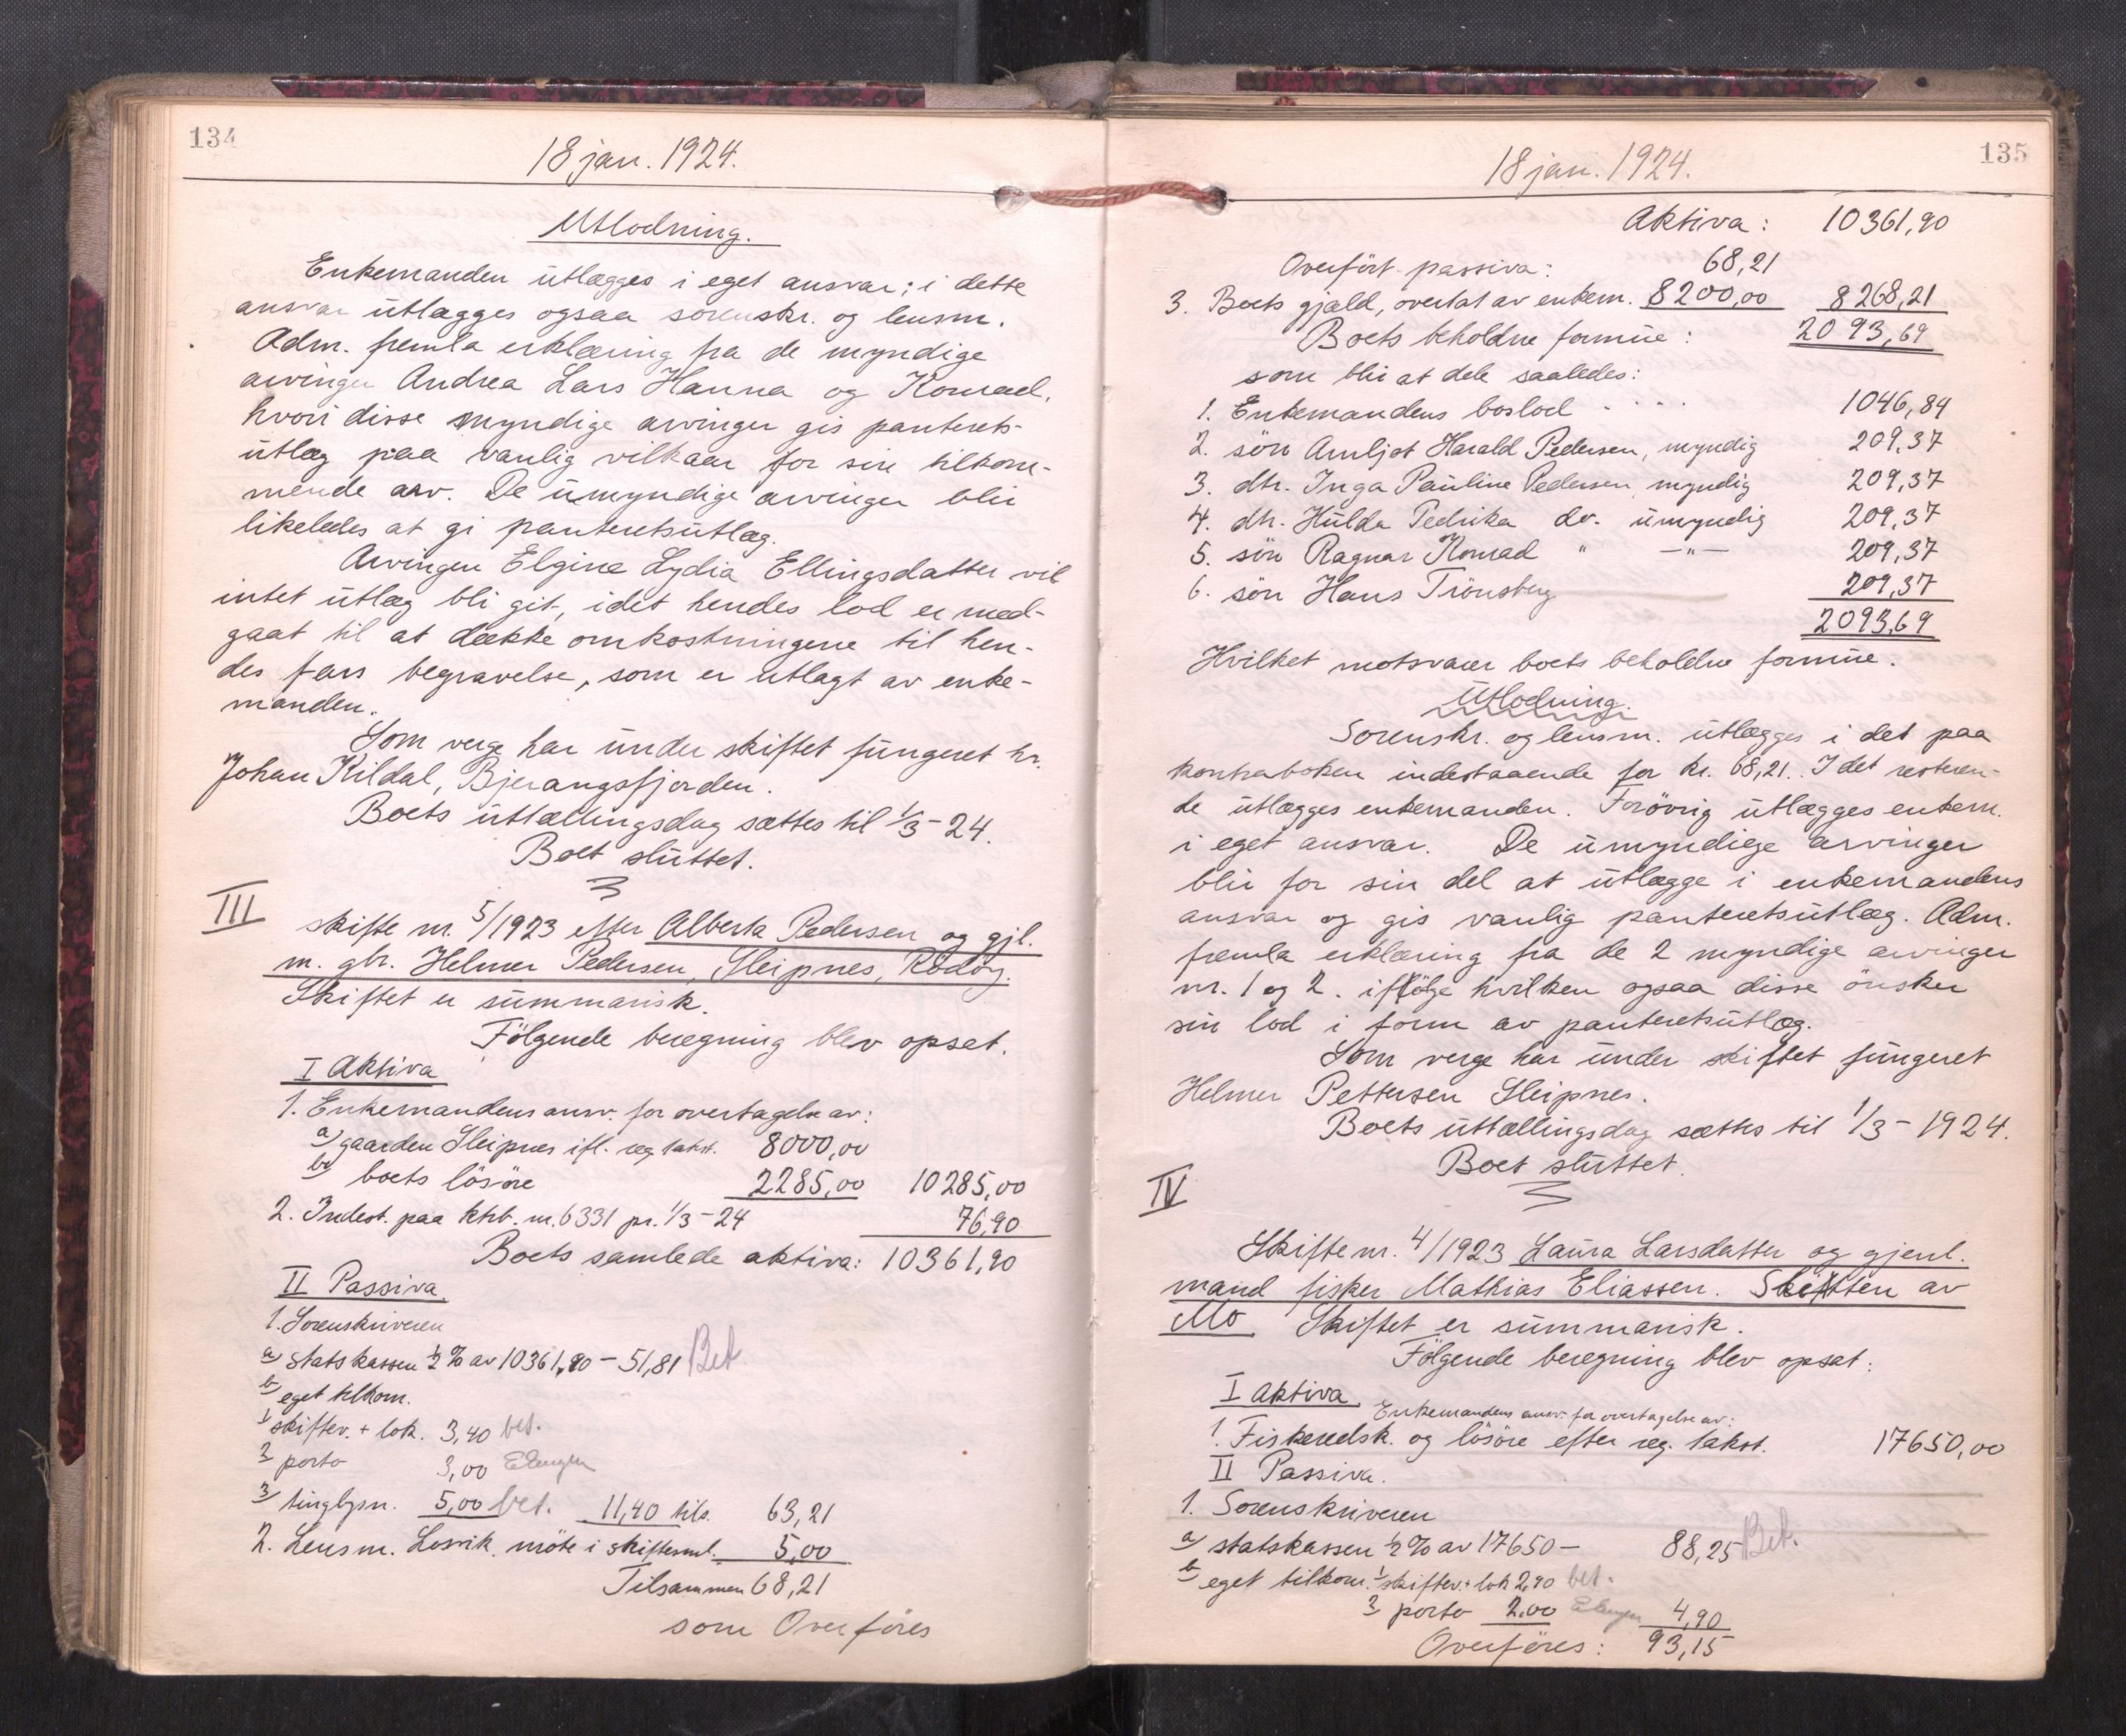 134
18 jan. 1924.
Utlodning.
Enkemanden utlægges i eget ansvar; i dette
ansvar utlægges ogsaa sorenskr. og lensm.
Adm. fremla erklæring fra de myndige
arvinger Andrea Lars Hanna og Konrad,
hvori disse myndige arvinger gis panterets-
utlæg paa vanlig vilkaar for sin tilkom-
mende arv. De umyndige arvinger blir
likeledes at gi panteretsutlæg.
Arvingen Elgine Lydia Ellingsdatter vil
intet utlæg bli git, idet hendes lod er med-
gaat til at dække omkostningene til hen-
des fars begravelse, som er utlagt av enke-
manden.
Som verge har under skiftet fungeret hr.
Johan Kildal, Bjerangsfjorden.
Boets utlællingsdag sættes til 1/3 - 24.
Boet sluttet.
III
skifte nr. 5/1923 efter Alberta Pedersen og gjl.
m. gbr. Helmer Pedersen, Sleipnes, Rödöy.
Skiftet er summarisk.
Fölgende beregning blev opsat.
I Aktiva
1. Enkemandens ansv. for overtagelse av:
a) gaarden Sleipnes ifl. reg. takst. 8000,00
b) boets lösöre 2285,00 10285,00
2. Indest. paa ktrb. nr. 6331 pr. 1/3 - 24 76,90
Boets samlede aktiva: 10361,90
II Passiva.
1. Sorenskriveren
a) statskassen ½ % av 10361,90 - 51,81 Bet
b) eget tilkom.
1) skiftev. + lok. 3,40 bet.
2) porto 3,00
3) tinglysn. 5,00 bet. 11,40 tils. 63,21
2. Lensm. Losvik. möte i skiftesml. 5,00
Tilsammen 68,21
som Overföres
135
18 jan. 1924.
Aktiva: 10361,90
Overfört passiva: 68,21
3. Boets gjæld, overtat av enkem. 8200,00 8268,21
Boets beholdne formue: 2093,69
som blir at dele saaledes:
1. Enkemandens boslod . . . . 1046,84
2. sön Arnljot Harald Pedersen, myndig 209,37
3. dtr. Inga Pauline Pedersen, myndig 209,37
4. dtr. Hulda Pedrika do. umyndig 209,37
5. sön Ragnar Konrad " —"— 209,37
6. sön Hans Trönsberg 209,37
2093,69
Hvilket motsvarer boets beholdne formue.
Utlodning.
Sorenskr. og lensm. utlægges i det paa
kontraboken indestaaende for kr. 68,21. I det resteren-
de utlægges enkemanden. Forövrig utlægges enkem.
i eget ansvar. De umyndige arvinger
blir for sin del at utlægge i enkemandens
ansvar og gis vanlig panteretsutlæg. Adm.
fremla erklæring fra de 2 myndige arvinger
nr. 1 og 2. ifölge hvilken ogsaa disse önsker
sin lod i form av panteretsutlæg.
Som verge har under skiftet fungeret
Helmer Pettersen Sleipnes.
Boets utlællingsdag sættes til 1/3 - 1924.
Boet sluttet.
IV
Skifte nr. 4/1923 Laura Larsdatter og gjenl.
mand fisker Mathias Eliassen. Skeitten av
Mo Skiftet er summarisk.
Fölgende beregning blev opsat:
I Aktiva. Enkemandens ansv. for overtagelse av:
1. Fiskeredsk. og lösöre efter reg. takst. 17650,00
II Passiva.
1. Sorenskriveren
a) statskassen ½ % av 17650 - 88,25 Bet.
b) eget tilkom. 1) skiftev. + lok 2,90 bet.
2) porto 2.00 4,90
Overföres: 93,15